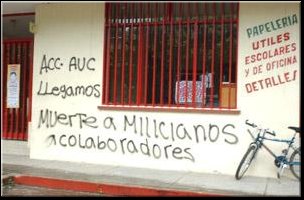 ACC. AUC
LLEGAMOS
MUERTE A MILICIANOS
A COLABORADORES
PAPELERIA
UTILES
ESCOLARES
Y DE OFICINA
DETALLES